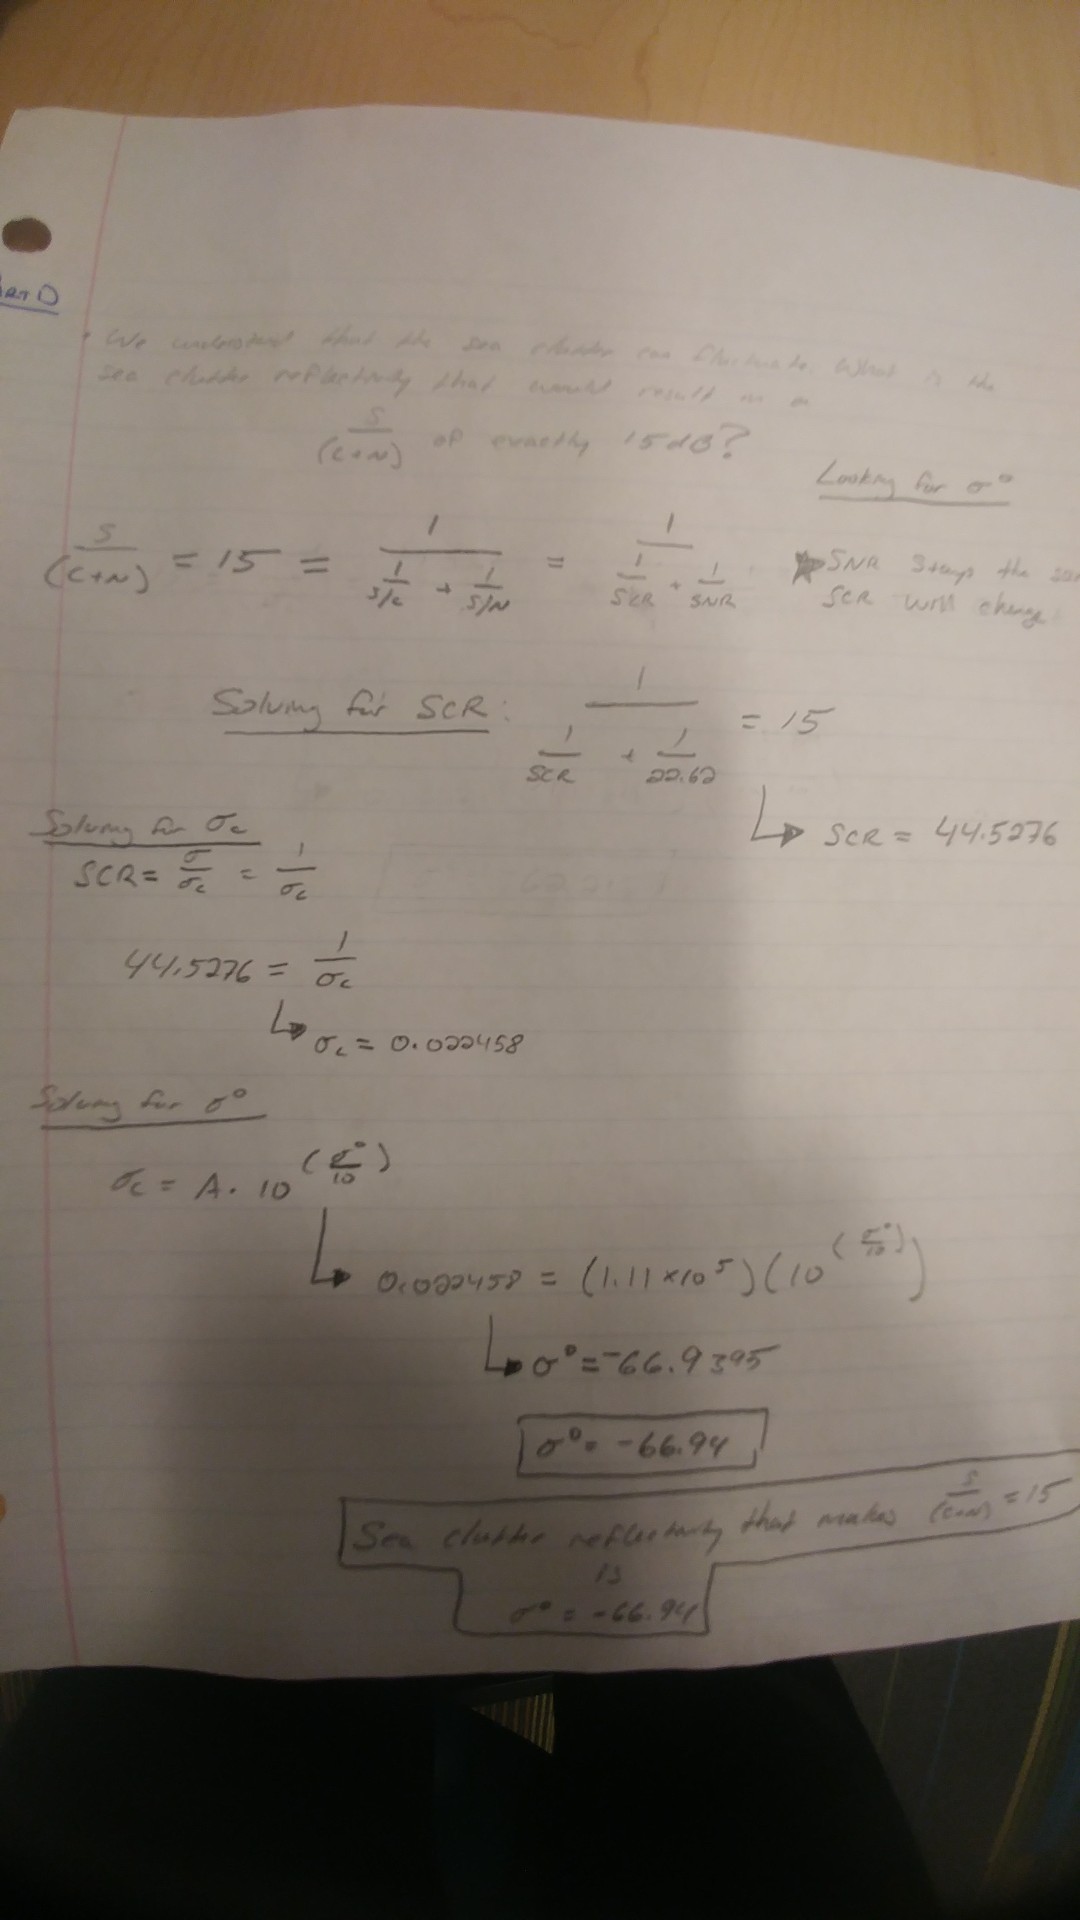 Part D
• We understand that the sea clutter can fluctuate. What is the
sea clutter reflectivity that would result in a
S/(C+N) of exactly 15dB?
Looking for σ°
S/(C+N) = 15 = 1/(1/(S/C) + 1/(S/N)) = 1/(1/SCR + 1/SNR) ★ SNR stays the
SCR will change
Solving for SCR: 1/(1/SCR + 1/22.62) = 15
↳ SCR = 44.5276
Solving for σc
SCR = σ/σc = 1/σc
44.5276 = 1/σc
↳ σc = 0.022458
Solving for σ°
σc = A · 10^(σ°/10)
↳ 0.022458 = (1.11 × 10^5)(10^(σ°/10))
↳ σ° = -66.9395
σ° = -66.94
Sea clutter reflectivity that makes S/(C+N) = 15
is
σ° = -66.94